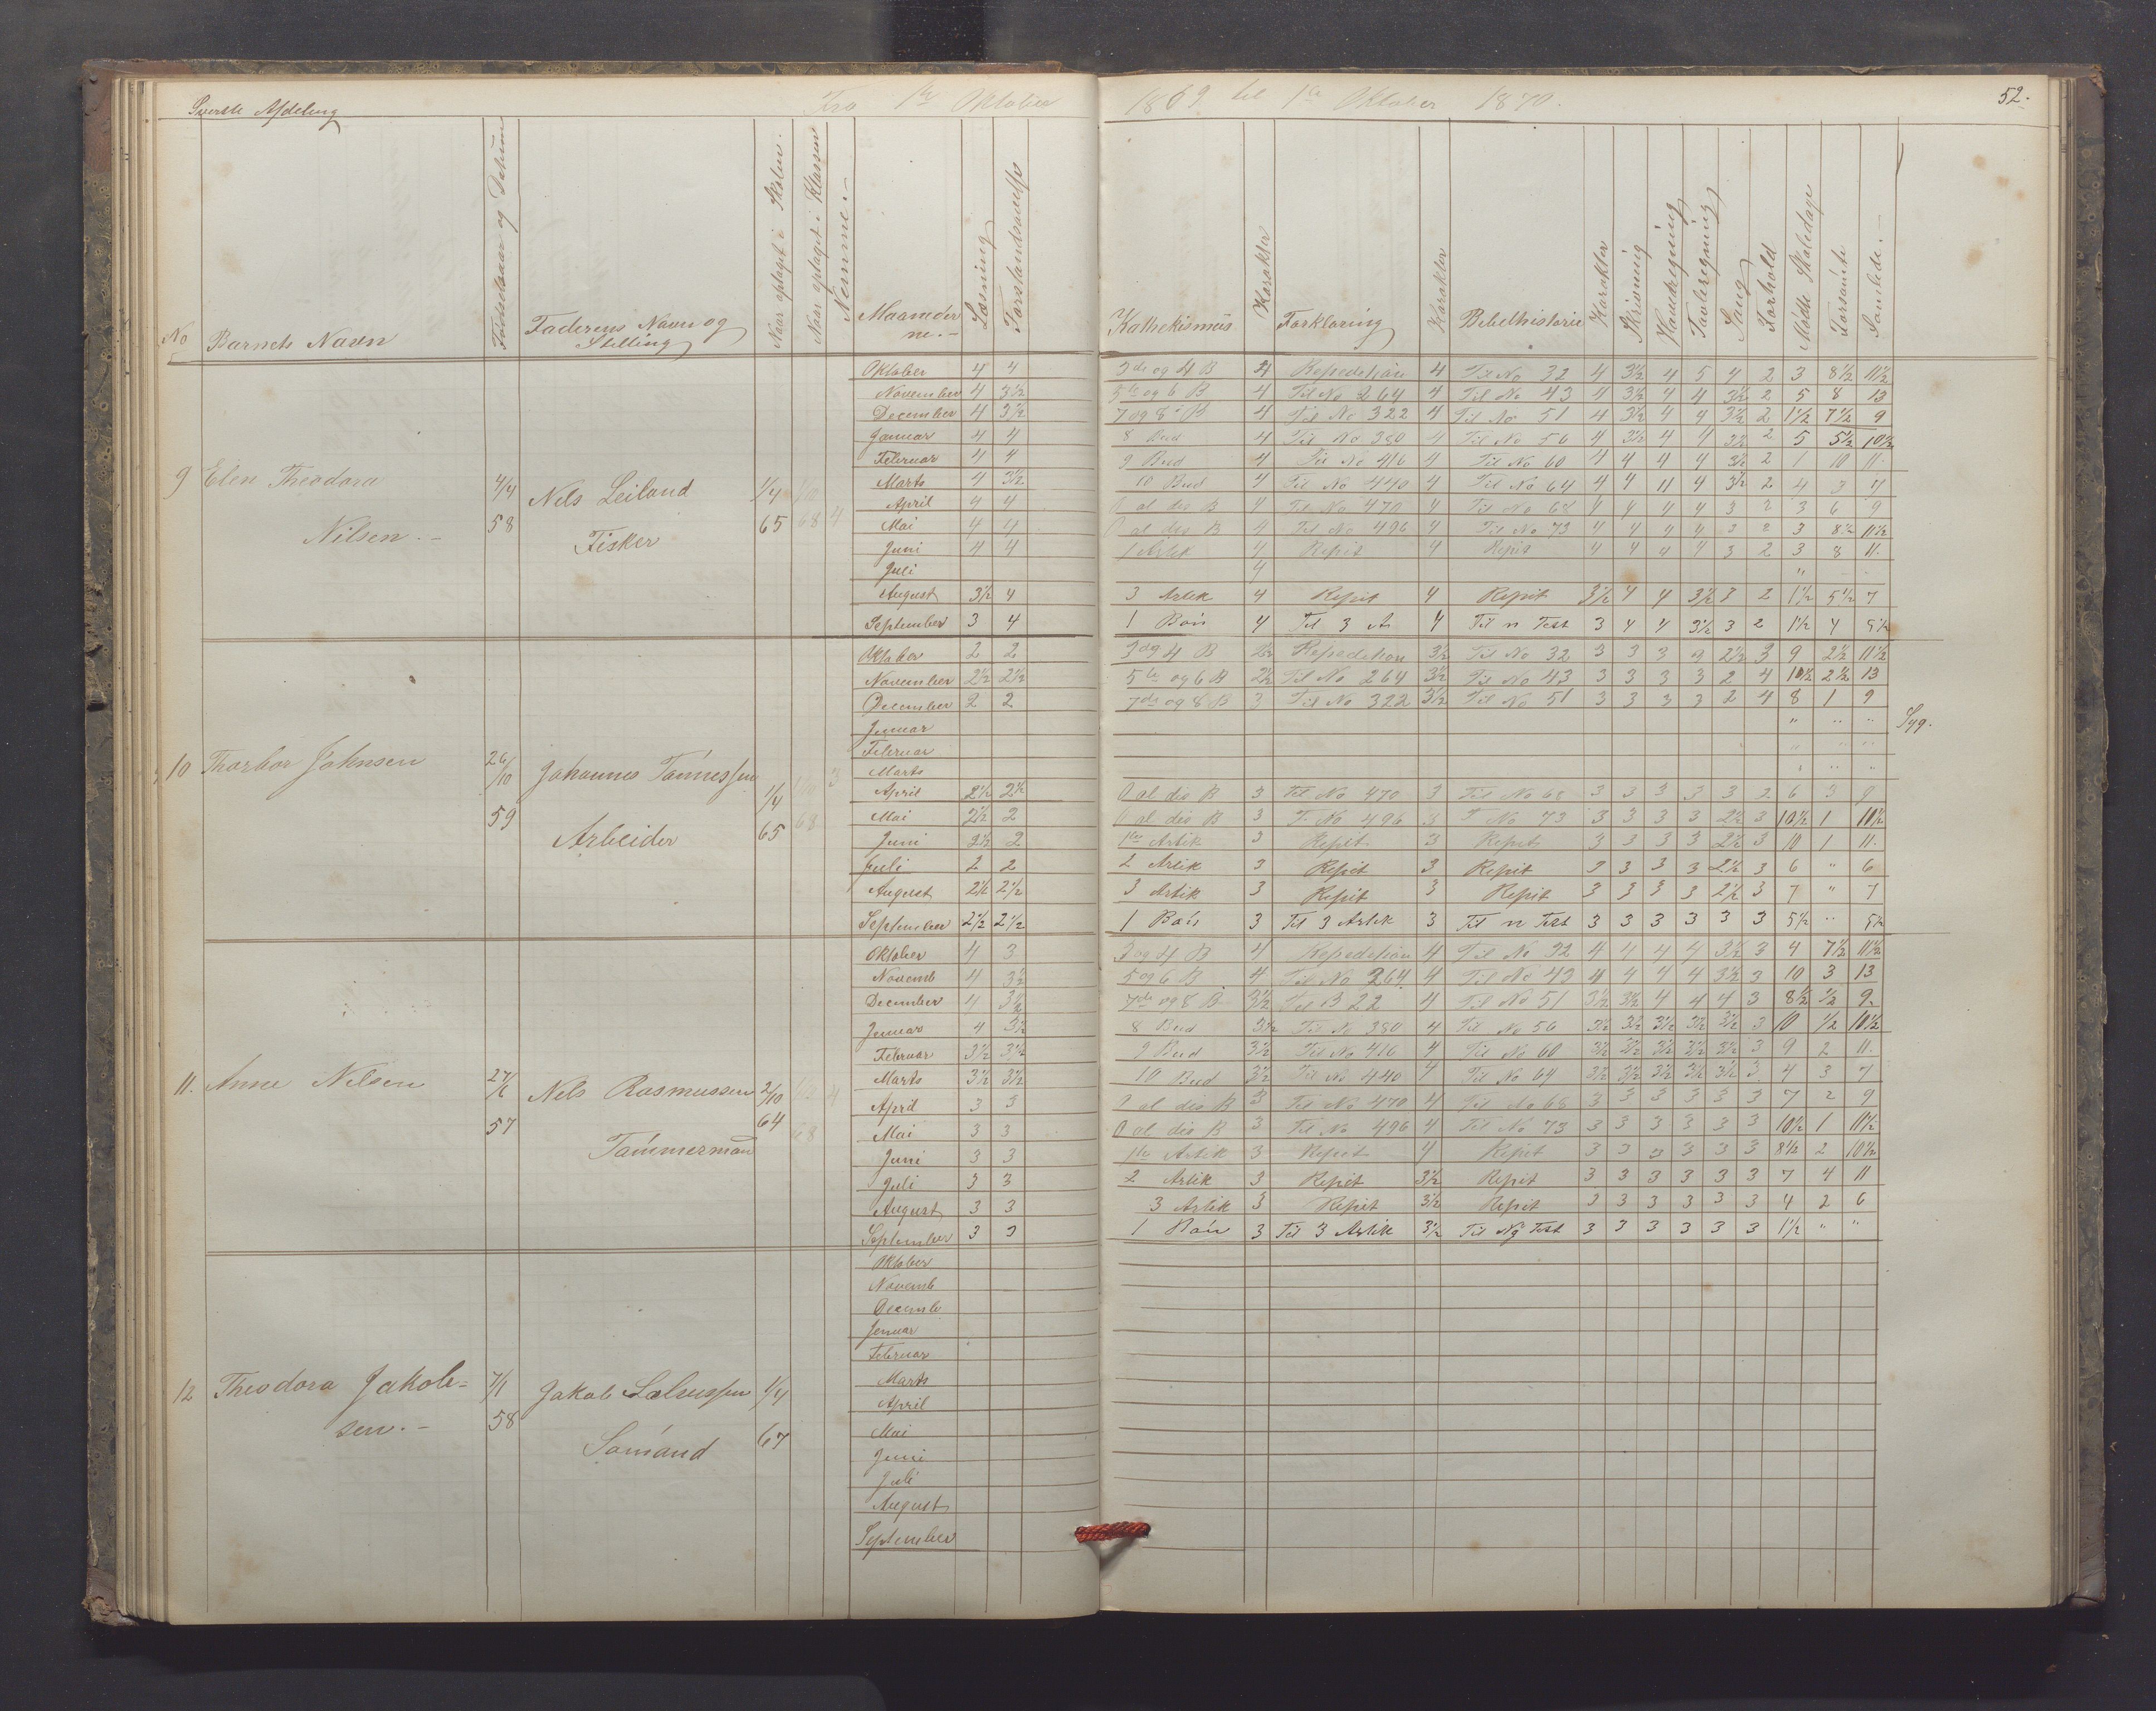 Øverste Afdeling
Fra 1ste Oktober 1869 til 1ste Oktober 1870.
52.
No
Barnets Navn
Fødselsaar og Datum
Faderens Navn og Stilling
Naar optaget i Skolen.
Naar optaget i Klassen
Nemme.-
Maanederne.-
Læsning
Forstandsøvelse
Kathekismus
Karakter
Forklaring
Karakter
Bibelhistorie
Karakter
Skrivning
Hovedregning
Tavleregning
Sang
Forhold
Mødte Skoledage
Forsømte
Samlede.-
9 Elen Theodora Nilsen.-
4/4 58
Nels Leiland
Fisker
1/4 65
1/10 68
4
Oktober 4 4 3de og 4 B 4 Repedetion 4 Til No 32 4 3½ 4 5 4 2 3 8½ 11½
November 4 3½ 5te og 6 B 4 Til No 264 4 Til No 43 4 3½ 4 4 3½ 2 5 8 13
December 4 3½ 7 og 8 B 4 Til No 322 4 Til No 51 4 3½ 4 4 3½ 2 1½ 7½ 9
Januar 4 4 8 Bud 4 Til No 380 4 Til No 56 4 3½ 4 4 3½ 2 5 5½ 10½
Februar 4 4 9 Bud 4 Til No 416 4 Til No 60 4 4 4 4 3½ 2 1 10 11
Marts 4 3½ 10 Bud 4 Til No 440 4 Til No 64 4 4 4 4 3½ 2 4 3 7
April 4 4 O al dis B 4 Til No 470 4 Til No 68 4 4 4 4 3 2 3 6 9
Mai 4 4 O al dis B 4 Til No 496 4 Til No 73 4 4 4 4 3 2 3 8½ 11½
Juni 4 4 1 Artik 4 Repit 4 Repit 4 4 4 4 3 2 3 8 11
Juli 4 "
August 3½ 4 3 Artik 4 Repit 4 Repit 3½ 4 4 3½ 3 2 1½ 5½ 7
September 3 4 1 Bøn 4 Til 3 A 4 Til n Test 3 4 4 3½ 3 2 1½ 4 5½
10 Thorbor Johnsen
26/10 59
Johannes Tønnessen
Arbeider
1/4 65
1/10 68
3
Oktober 2 2 3 og 4 B 2½ Repedetion 3½ Til No 32 3 3 3 3 2½ 3 9 2½ 11½
November 2½ 2½ 5te og 6 B 2½ Til No 264 3½ Til No 43 3 3 3 3 2 4 10½ 2½ 13
December 2 2 7de og 8 B 3 Til No 322 3½ Til No 51 3 3 3 3 2 4 8 1 9
Januar " " " Syg.
Februar " " "
Marts " " "
April 2½ 2½ O al dis B 3 Til No 470 3 Til No 68 3 3 3 3 3 2 6 3 9
Mai 2½ 2 O al dis B 3 T. No 496 3 T No 73 3 3 3 3 2½ 3 10½ 1 10½
Juni 2½ 2 1ste Artik 3 Repit 3 Repit 3 3 3 3 2½ 3 10 1 11
Juli 2 2 2 Artik 3 Repit 3 Repit 3 3 3 3 2½ 3 6 " 6
August 2½ 2½ 3 Artik 3 Repit 3 Repit 3 3 3 3 2½ 3 7 " 7
September 2½ 2½ 1 Bøn 3 Til 3 Artik 3 Til n Test 3 3 3 3 3 3 5½ " 5½
11. Anne Nilsen
27/6 57
Nels Rasmussen
Tømmermand
2/10 64
68
4
Oktober 4 3 3 og 4 B 4 Repedetion 4 Til No 32 4 4 4 4 3½ 3 4 7½ 11½
Novemb 4 3½ 5 og 6 B 4 Til No 264 4 Til No 43 4 4 4 4 3½ 3 10 3 13
December 4 3½ 7de og 8 B 3½ Til B 22 4 Til No 51 3½ 3½ 4 4 4 3 8½ ½ 9
Januar 4 3½ 8 Bud 3½ Til No 380 4 Til No 56 3½ 3½ 3½ 3½ 3½ 3 10 ½ 10½
Februar 3½ 3½ 9 Bud 3½ Til No 416 4 Til No 60 3½ 3½ 3½ 3½ 3½ 3 9 2 11
Marts 3½ 3½ 10 Bud 3½ Til No 440 4 Til No 64 3½ 3½ 3½ 3½ 3½ 3 4 3 7
April 3 3 O al dis B 3 Til No 470 4 Til No 68 3 3 3 3 3 3 7 2 9
Mai 3 3 O al dis B 3 Til No 496 4 Til No 73 3 3 3 3 3 3 10½ 1 11½
Juni 3 3 1ste Artik 3 Repit 4 Repit 3 3 3 3 3 3 8½ 2 10½
Juli 3 3 2 Artik 3 Repit 3½ Repit 3 3 3 3 3 3 7 4 11
August 3 3 3 Artik 3 Repit 3½ Repit 3 3 3 3 3 3 4 2 6
September 3 3 1 Bøn 3 Til 3 Artik 3½ Til Ny Test 3 3 3 3 3 3 1½ " "
12 Theodora Jakobsen.-
7/1 58
Jakob
Sømand
1/4 67
Oktober
Novemb
Decemb
Januar
Februar
Marts
April
Mai
Juni
Juli
August
September